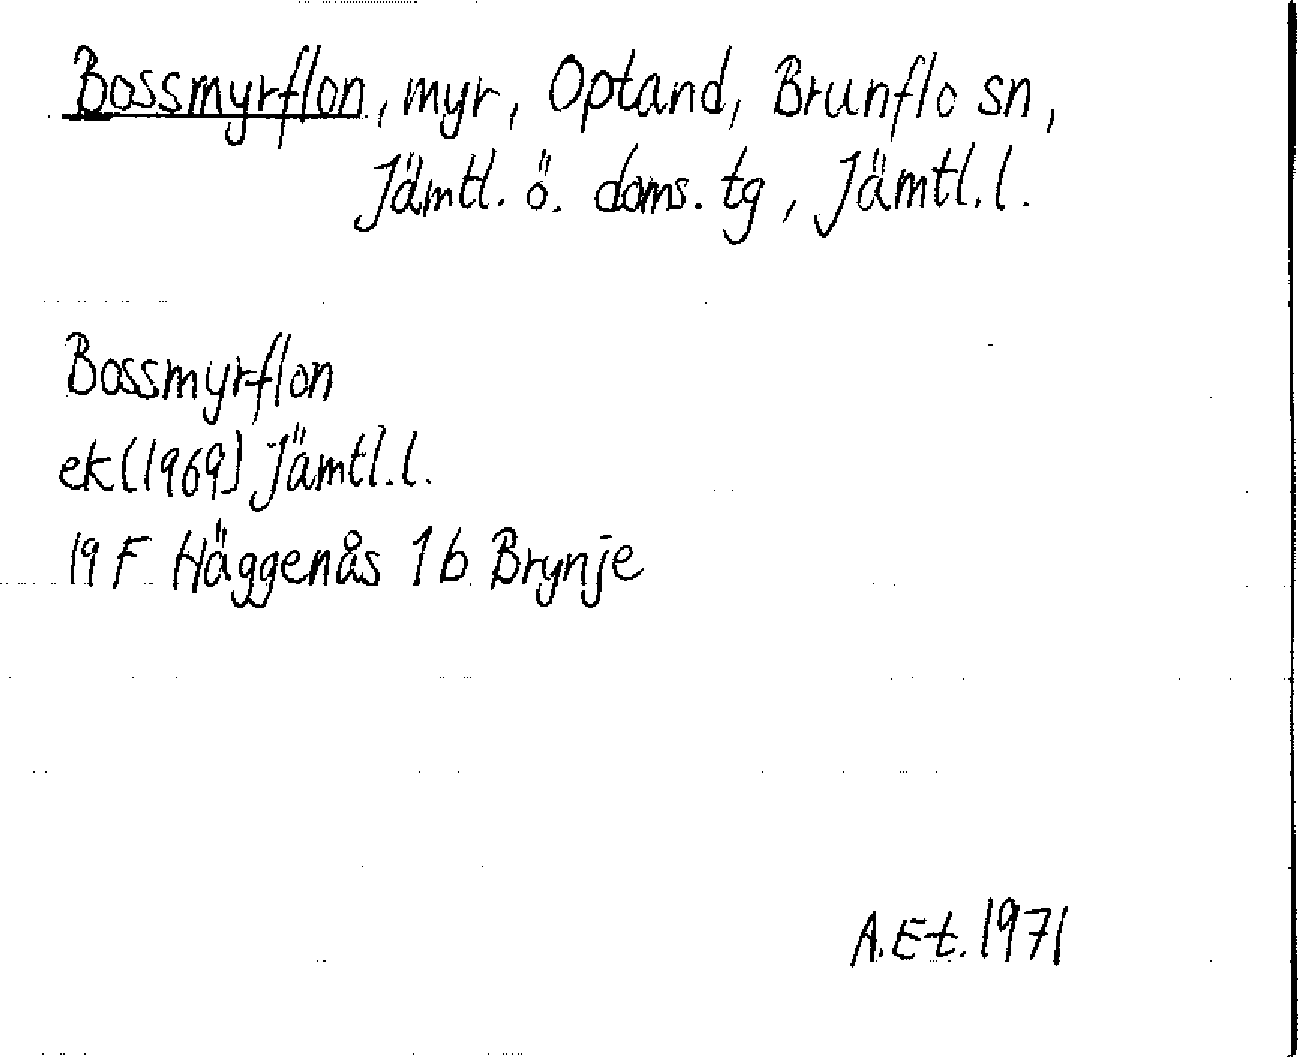 Bossmyrflon, myr, Optand, Brunflo sn,
Jämtl. ö. doms. tg, Jämtl. l.
Bossmyrflon
ek (1969) Jämtl. l.
19 F Häggenås 1 b Brynje
A. Et. 1971